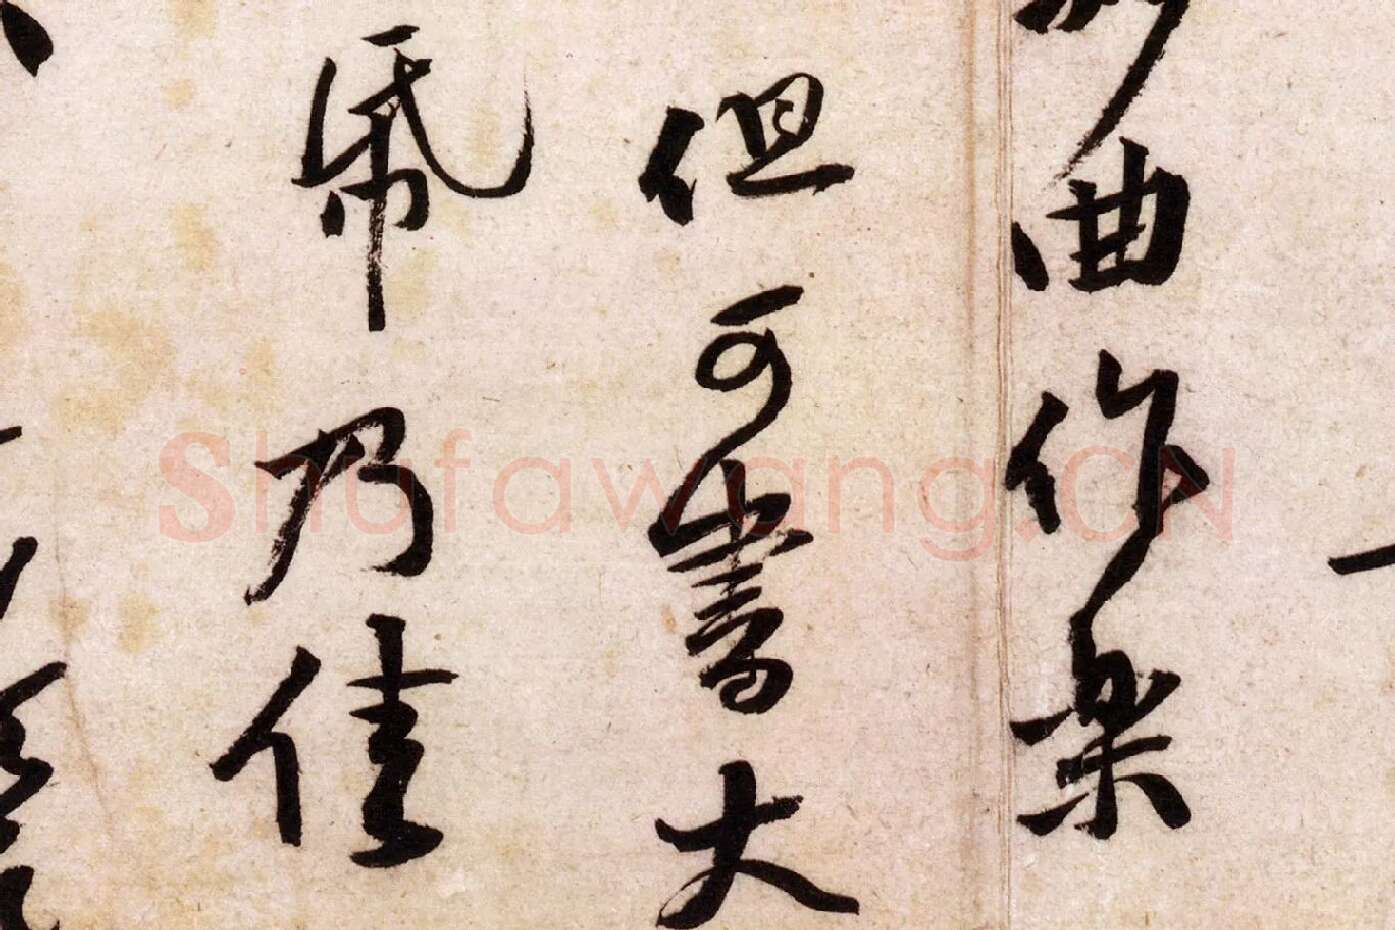 妙曲作樂
但可書大
帋乃佳
Shufawang.CN